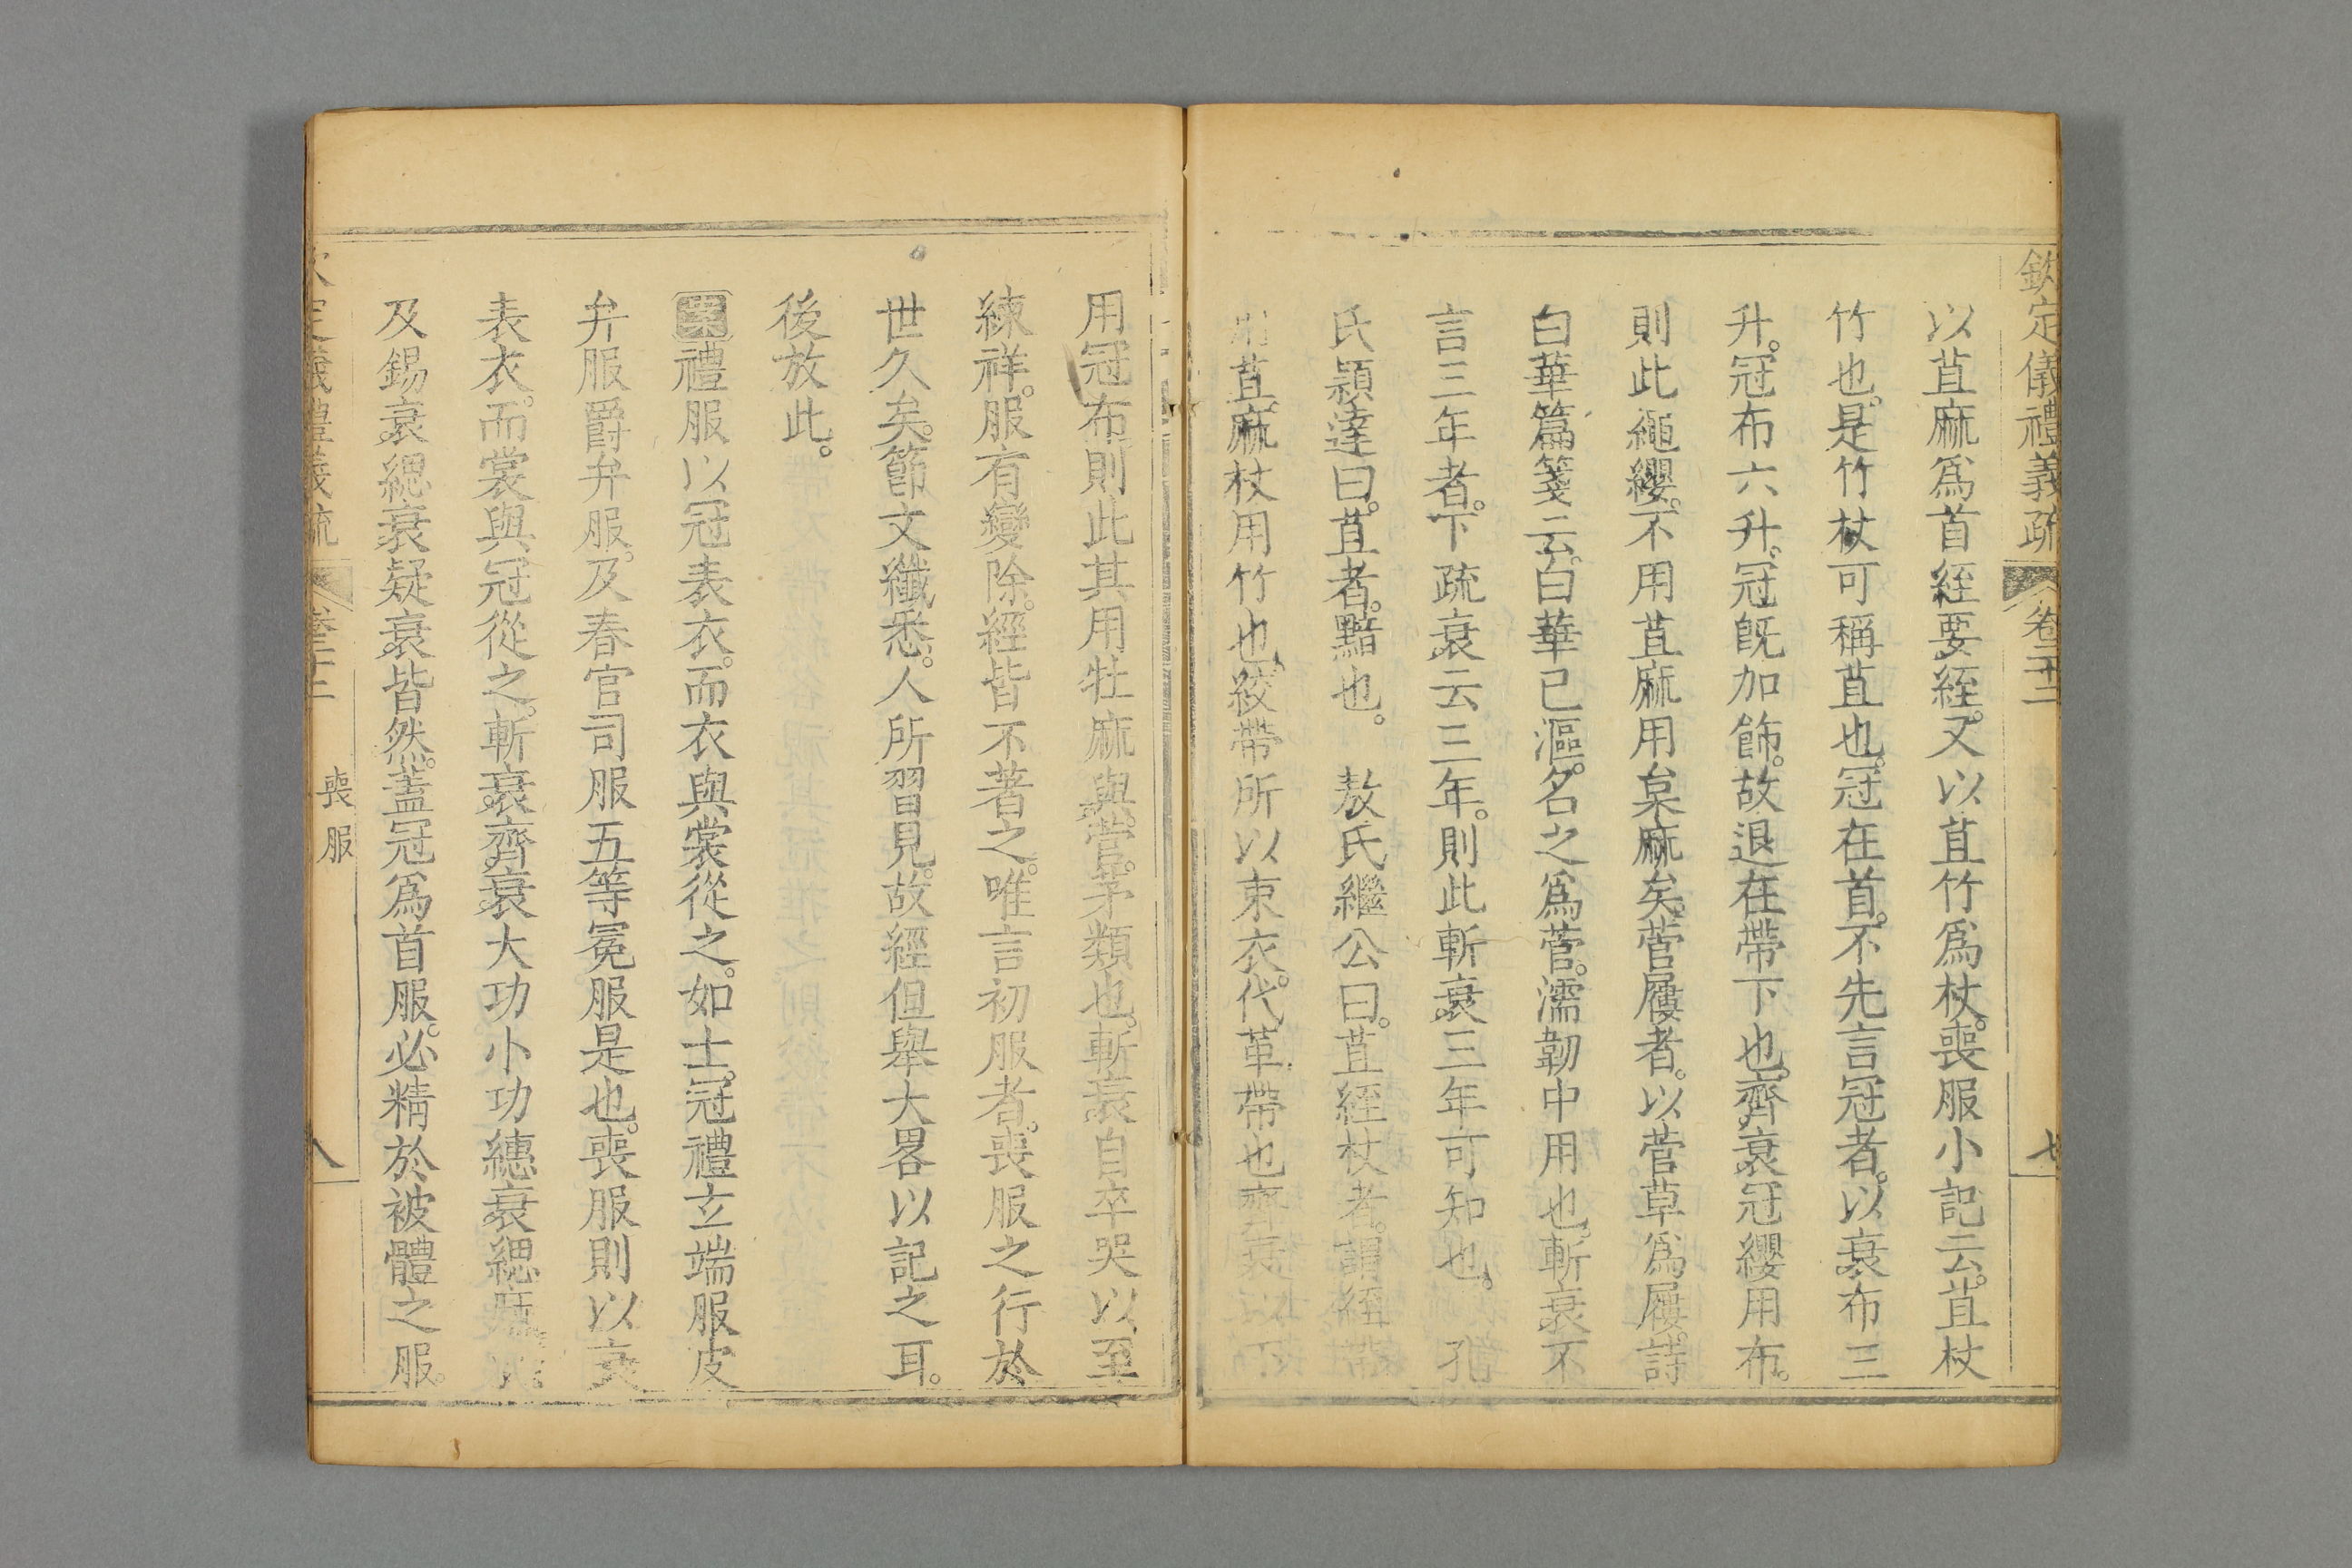 欽定儀禮義疏 卷二十二 七
以苴麻爲首絰要絰。又以苴竹爲杖。喪服小記云。苴杖
竹也。是竹杖可稱苴也。冠在首。不先言冠者。以衰布三
升。冠布六升。冠旣加飾。故退在帶下也。齊衰冠纓用布。
則此繩纓。不用苴麻用枲麻矣。菅屨者。以菅草爲屨。詩
白華篇箋云。白華已漚。名之爲菅。濡韌中用也。斬衰不
言三年者。下疏衰云三年。則此斬衰三年可知也。 孔
氏穎達曰。苴者。黯也。 敖氏繼公曰。苴絰杖者。謂絰帶
用苴麻。杖用竹也。絞帶所以束衣。代革帶也。齊衰以下
用冠布則此其用牡麻與。菅。茅類也。斬衰自卒哭以至
練祥。服有變除。經皆不著之。唯言初服者。喪服之行於
世久矣。節文纖悉。人所習見。故經但舉大畧以記之耳。
後放此。
案禮服以冠表衣。而衣與裳從之。如士。冠禮玄端服皮
弁服爵弁服。及春官司服五等冕服是也。喪服則以衰
表衣。而裳與冠從之。斬衰。齊衰。大功小功繐衰緦麻
及錫衰。緦衰疑衰。皆然。蓋冠爲首服。必精於被體之服。
欽定儀禮義疏 卷二十二 喪服 八